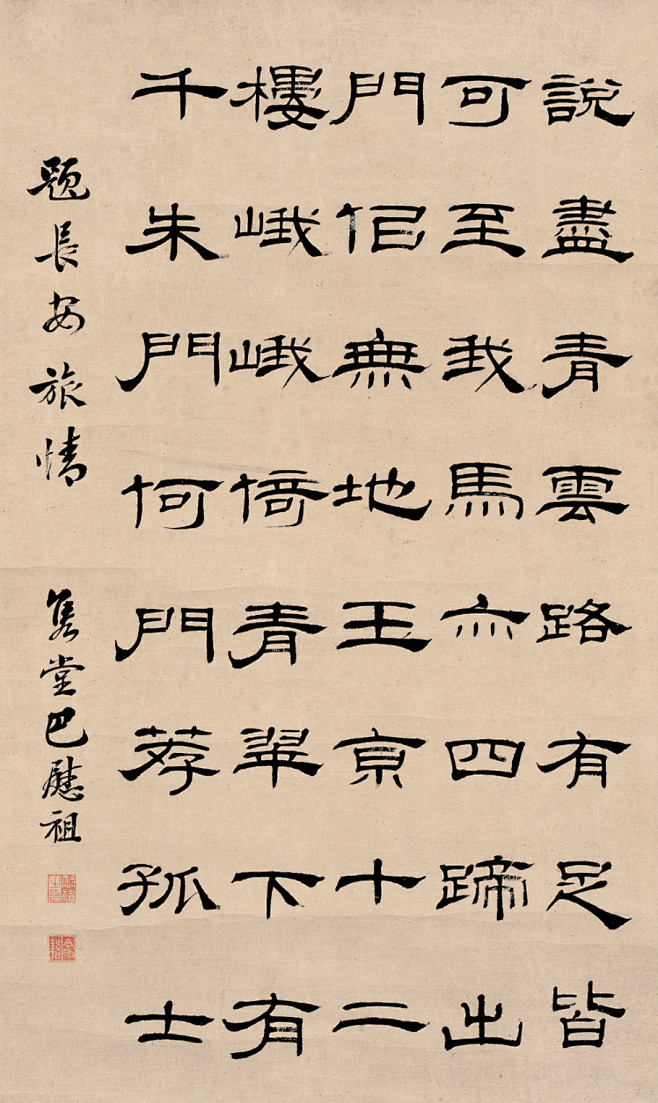 說盡青雲路有足皆
可至我馬亦四蹄出
門佀無地王亰十二
樓峨峨倚青翠下有
千朱門何門荐孤士
題長安旅情 雋堂巴慰祖